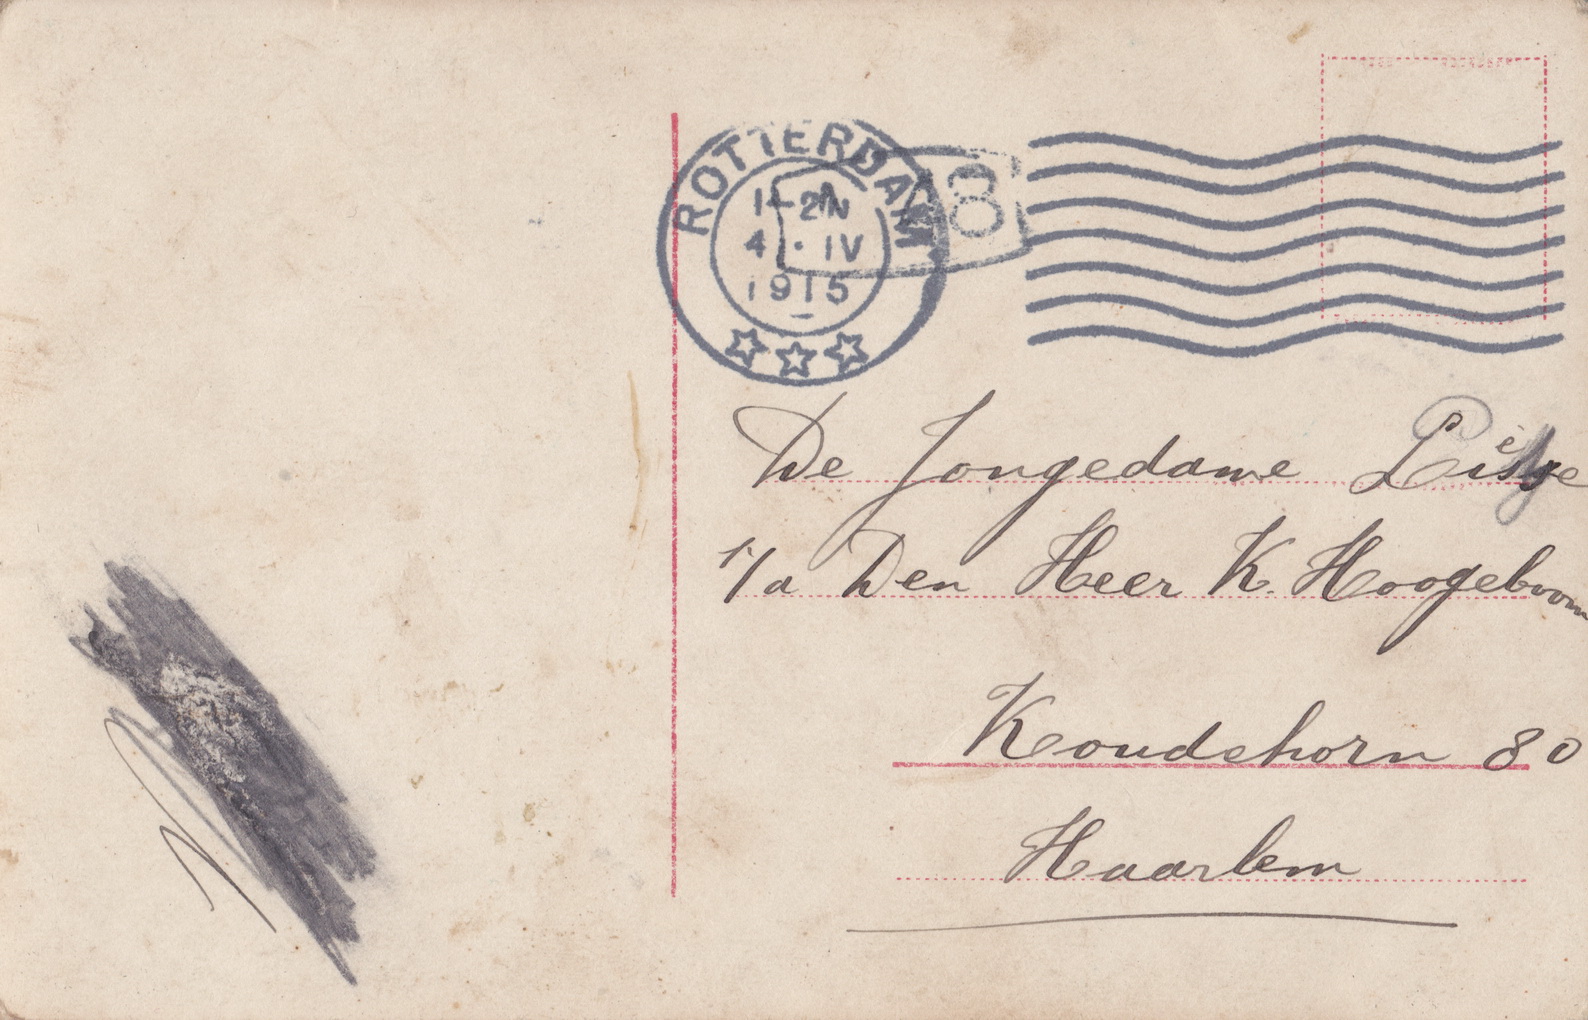 ROTTERDAM
1-2N
4·IV
1915
8
De Jongedame
p/a Den Heer K. Hoogeboom
Koudehorn 80
Haarlem